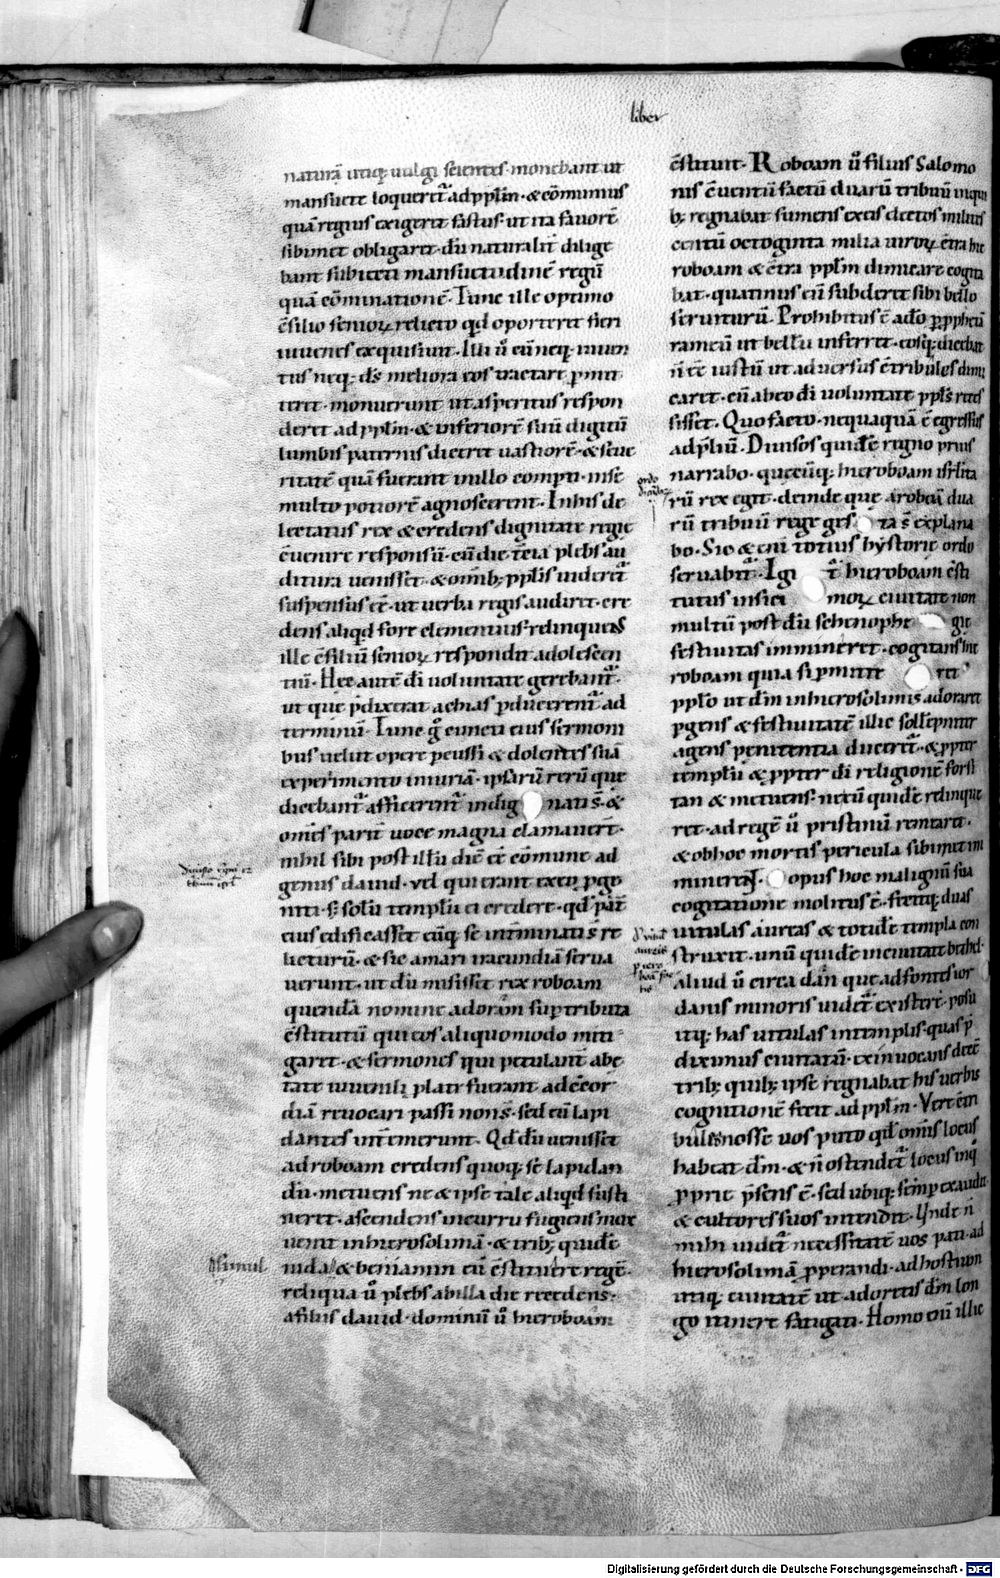 liber
naturā utiq; uulgi scientes· monebant ut
mansuete loqueret᷑ ad ppl̄m· & cōmunius
quā regius exigeret fastus· ut ita fauorē
sibimet obligaret· dū naturalit̄ dilige
bant subiecti mansuetudinē regū
quā cōminationē· Tunc ille optimo
ɔ̄silio senioꝝ relicto qd̄ oporteret fieri
iuuenes exquisiuit· Illi u᷎ cū neq; iuuen
tus neq; d̄s meliora eos tractare p̄mit
teret· monuerunt ut asperius respon
deret ad ppl̄m· & inferiorē suū digitū
lumbis paternis diceret uastiorē· & seue
ritatē quā fuerant in illo comp̄ti· in se
multo potiorē agnoscerent· In his de
lectatus rex & credens dignitate regie
ɔ̄uenire responsū· cū die t̄cia plebs au
ditura uenisset· & om̄ib; ppl̄is uideret᷑
suspensus ēē· ut uerba regis audiret· cre
dens aliqd̄ fore clementius· relinquens
ille ɔ̄siliū senioꝝ respondit adolescen
tiū· Hec autē dī uoluntate gerebant᷑·
ut que p̄dixerat achias p̄ducerent᷑ ad
terminū· Tunc g᷎ cuncti eius sermoni
bus uelut opere p̄cussi & dolentes suā
experimento iniuriā· ipsarū rerū que
dicebant᷑ afficerent᷑ indig nati s̄· &
om̄es parit̄ uoce magna clamauer̄t·
nihil sibi post illū diē ēē cōmune ad
genus dauid· uel qui erant ex eo p̄ge
niti· s; solū templū ei credere· qd̄ pat̄
eius edificasset eūq; se int̄minati s̄ re
licturū· & sic amari iracundiā serua
uerunt· ut dū misisset rex roboam
quendā nomine adoram sup tributa
ɔ̄stitutū qui eos aliquomodo miti
garet· & sermones qui petulant̄ abe
tate iuuenili plati fuerant ad ɔ̄cor
diā reuocari passi non s̄· sed eū lapi
dantes int̄emerunt· Qd̄ dū uenisset
ad roboam credens quoq; se lapidan
dū· metuens ne & ipse tale aliqd̄ susti
neret· ascendens in curru fugiens mox
uenit in hierosolimā· & trib; quidē
iuda & beniamin eū ɔ̄stituere regē·
reliqua u᷎ plebs ab illa die recedens·
a filiis dauid· dominū u᷎ hieroboam
ɔ̄stituit· Roboam u᷎ filius Salomo
nis ɔ̄uentū factū duarū tribuū in qui
b; regnabat sumens ex eis electos milites
centū octoginta milia uiroꝝ ɔ̄tra hie
roboam & ɔ̄tra ppl̄m dimicare cogita
bat· quatinus eū subderet sibi bello
seruiturū· Prohibitus ē a dō p̱ p̱phetā
rameū ut bellū inferret· eosq; dicebat
n̄ ēē iustū ut aduersus ɔ̄tribules dimi
caret· cū ab eo dī uoluntate ppl̄s reces
sisset· Quo facto· nequaquā ē egressus
ad p̄liū· Diuisos quidē regno prius
narrabo· quecūq; hieroboam isrl̄ita
rū rex egit· deinde que a roboā dua
rū tribuū rege ges ta s̄ explana
bo· Sic & enī totius hystorie ordo
seruabit᷑· Igi t᷑ hieroboam ɔ̄sti
tutus in sici moꝝ ciuitate non
multū post dū schenophe gie
festiuitas immineret· cogitans hie
roboam quia si p̄mitte ret
ppl̄o ut dm̄ in hierosolimis adoraret
p̱gens & festiuitatē illic sollēpniter
agens penitentia duceret᷑· & p̱pter
templū & p̱pter dī religionē forsi
tan & metuens· ne eū quidē relinque
ret· ad regē u᷎ pristinū remearet·
& ob hoc mortis pericula sibimet im
minerent· opus hoc malignū sua
cogitatione molitus ē· fecitq; duas
uitulas aureas & totidē templa con
struxit· unū quidē in ciuitate bethel·
aliud u᷎ circa dan que ad fontes ior
danis minoris uidet᷑ existere· posu
itq; has uitulas in templis· quas p̄
diximus ciuitatū· & ɔ̄uocans decē
trib; quib; ipse regnabat his uerbis
cognitionē fecit ad ppl̄m· Vere ɔ̄tri
bules nosse uos puto qd̄ om̄is locus
habeat dm̄· & n̄ ostendet᷑ locus in q᷎
p̱prie p̄sens ē· sed ubiq; semp exaudit·
& cultores suos intendit· Unde n̄
mihi uidet᷑ necessitatē uos pati· ad
hierosolimā p̱perandi· ad hostium
itiq; ciuitatē ut adoretis dm̄ lon
go itinere fatigati· Homo enī illic
simul
Digitalisierung gefördert durch die Deutsche Forschungsgemeinschaft - DFG